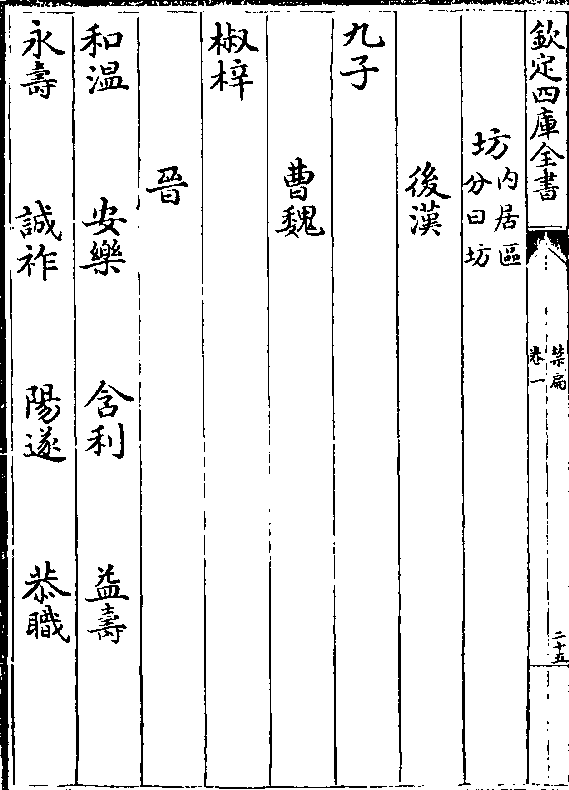 欽定四庫全書
禁扁
卷一
二十五
坊
內居區
分曰坊
後漢
九子
曹魏
椒梓
晉
和温 安樂 含利 益壽
永壽 誠祚 陽遂 恭職